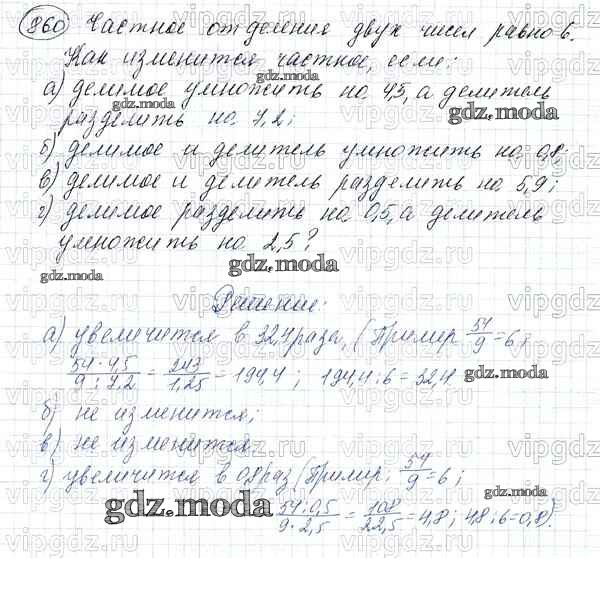 860 Частное от деления двух чисел равно 6.
Как изменится частное, если:
а) делимое умножить на 4,5, а делитель
разделить на 7,2;
б) делимое и делитель умножить на 0,8;
в) делимое и делитель разделить на 5,9;
г) делимое разделить на 0,5, а делитель
умножить на 2,5?
Решение:
а) увеличится в 32,4 раза, (Пример 54/9 = 6;
54 · 4,5 / 9 : 7,2 = 243 / 1,25 = 194,4 ; 194,4 : 6 = 32,4
б) не изменится;
в) не изменится
г) увеличится в 0,8 раз (Пример: 54/9 = 6 ;
54 : 0,5 / 9 · 2,5 = 108 / 22,5 = 4,8 ; 4,8 : 6 = 0,8).
gdz.moda
vipgdz.ru